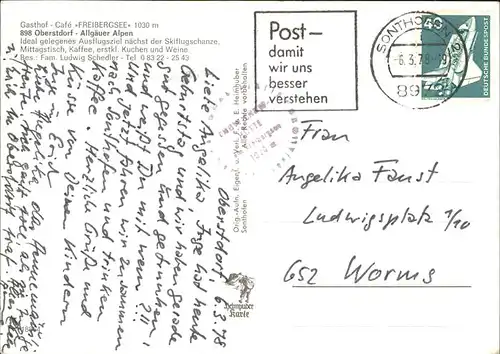 Gasthof - Café «FREIBERGSEE» 1030 m
898 Oberstdorf - Allgäuer Alpen
Ideal gelegenes Ausflugsziel nächst der Skiflugschanze,
Mittagstisch, Kaffee, erstkl. Kuchen und Weine
Bes.: Fam. Ludwig Schedler - Tel. 0 83 22 - 25 43
Post-
damit
wir uns
besser
verstehen
SONTHOFEN
-6.3.78-19
897
40
DEUTSCHE BUNDESPOST
Oberstdorf 6.3.78
Liebe Angelika Inge hat heute
Geburtstag und wir haben gerade
gut gegessen und getrunken
und weißt Du mit wem?!!
Und jetzt fahren wir zusammen
nach Sonthofen und trinken
Kaffee. Herzliche Grüße und
Küsse von Deinen Kindern
Erich
Liebe Angelika,
Heimhuber
Karte
Orig.-Aufn. Eigent. u. Verl. E. Heimhuber
Sonthofen
Alle Rechte vorbehalten
Frau
Angelika Faust
Ludwigsplatz 7/10
652 Worms